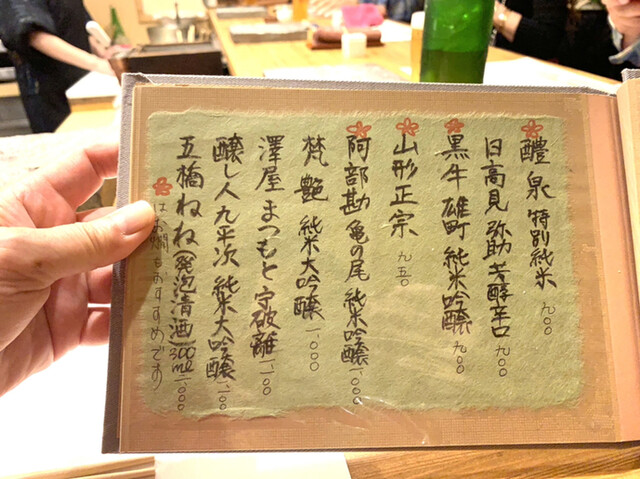 醴泉 特別純米 九〇〇
日高見 弥助 芳醇辛口 九〇〇
黒牛 雄町 純米吟醸 九〇〇
山形正宗 九五〇
阿部勘 亀の尾 純米吟醸 一、〇〇〇
梵 艶 純米大吟醸 一、〇〇〇
澤屋まつもと 守破離 一、一〇〇
醸し人九平次 純米大吟醸 一、一〇〇
五橋 ねね(発泡清酒)300ml 一、〇〇〇
はお燗もおすすめです